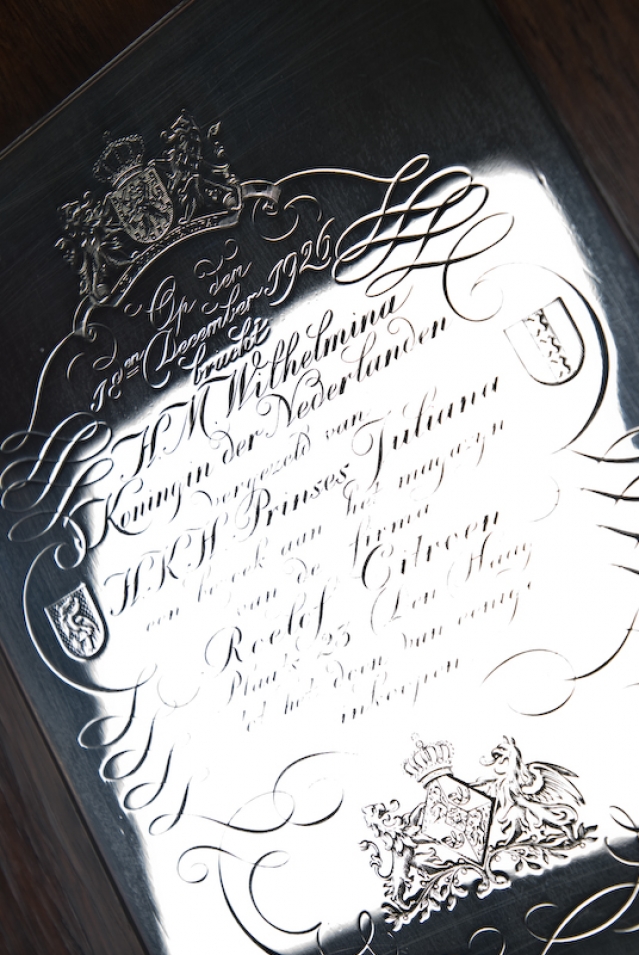 Op den
18en December 1926
bracht
H M Wilhelmina
Koningin der Nederlanden
vergezeld van
H K H Prinses Juliana
een bezoek aan het magazijn
van de firma
Roelof Citroen
Plaats 25 Den Haag
tot het doen van eenige
inkoopen